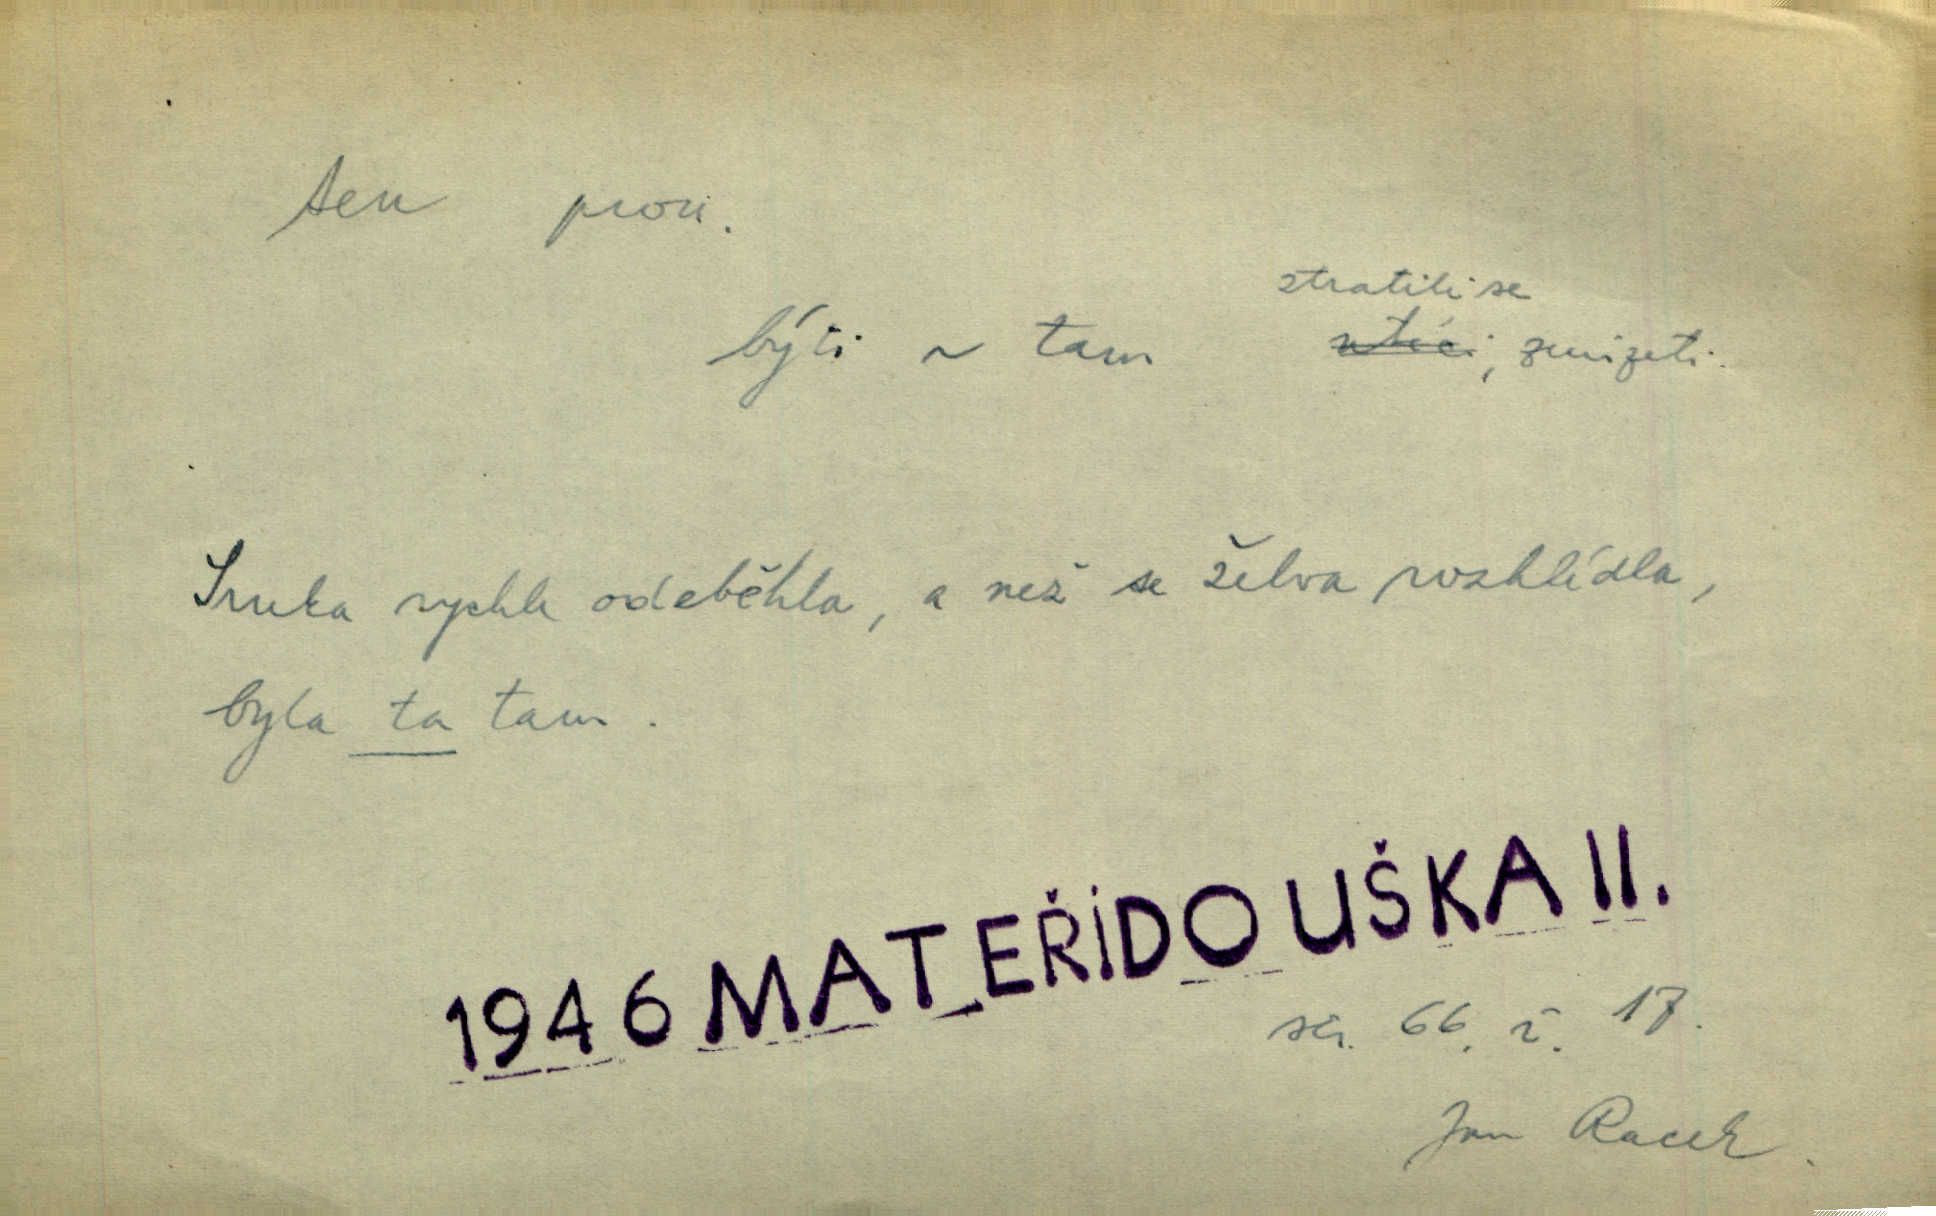 ten
býti ~ tam
stratiti se
utéci, zmizeti.
Srnka rychle odeběhla, a než se želva rozhlédla,
byla ta tam.
1946 MATEŘÍDOUŠKA II.
str. 66. č. 17.
Jan Racek.